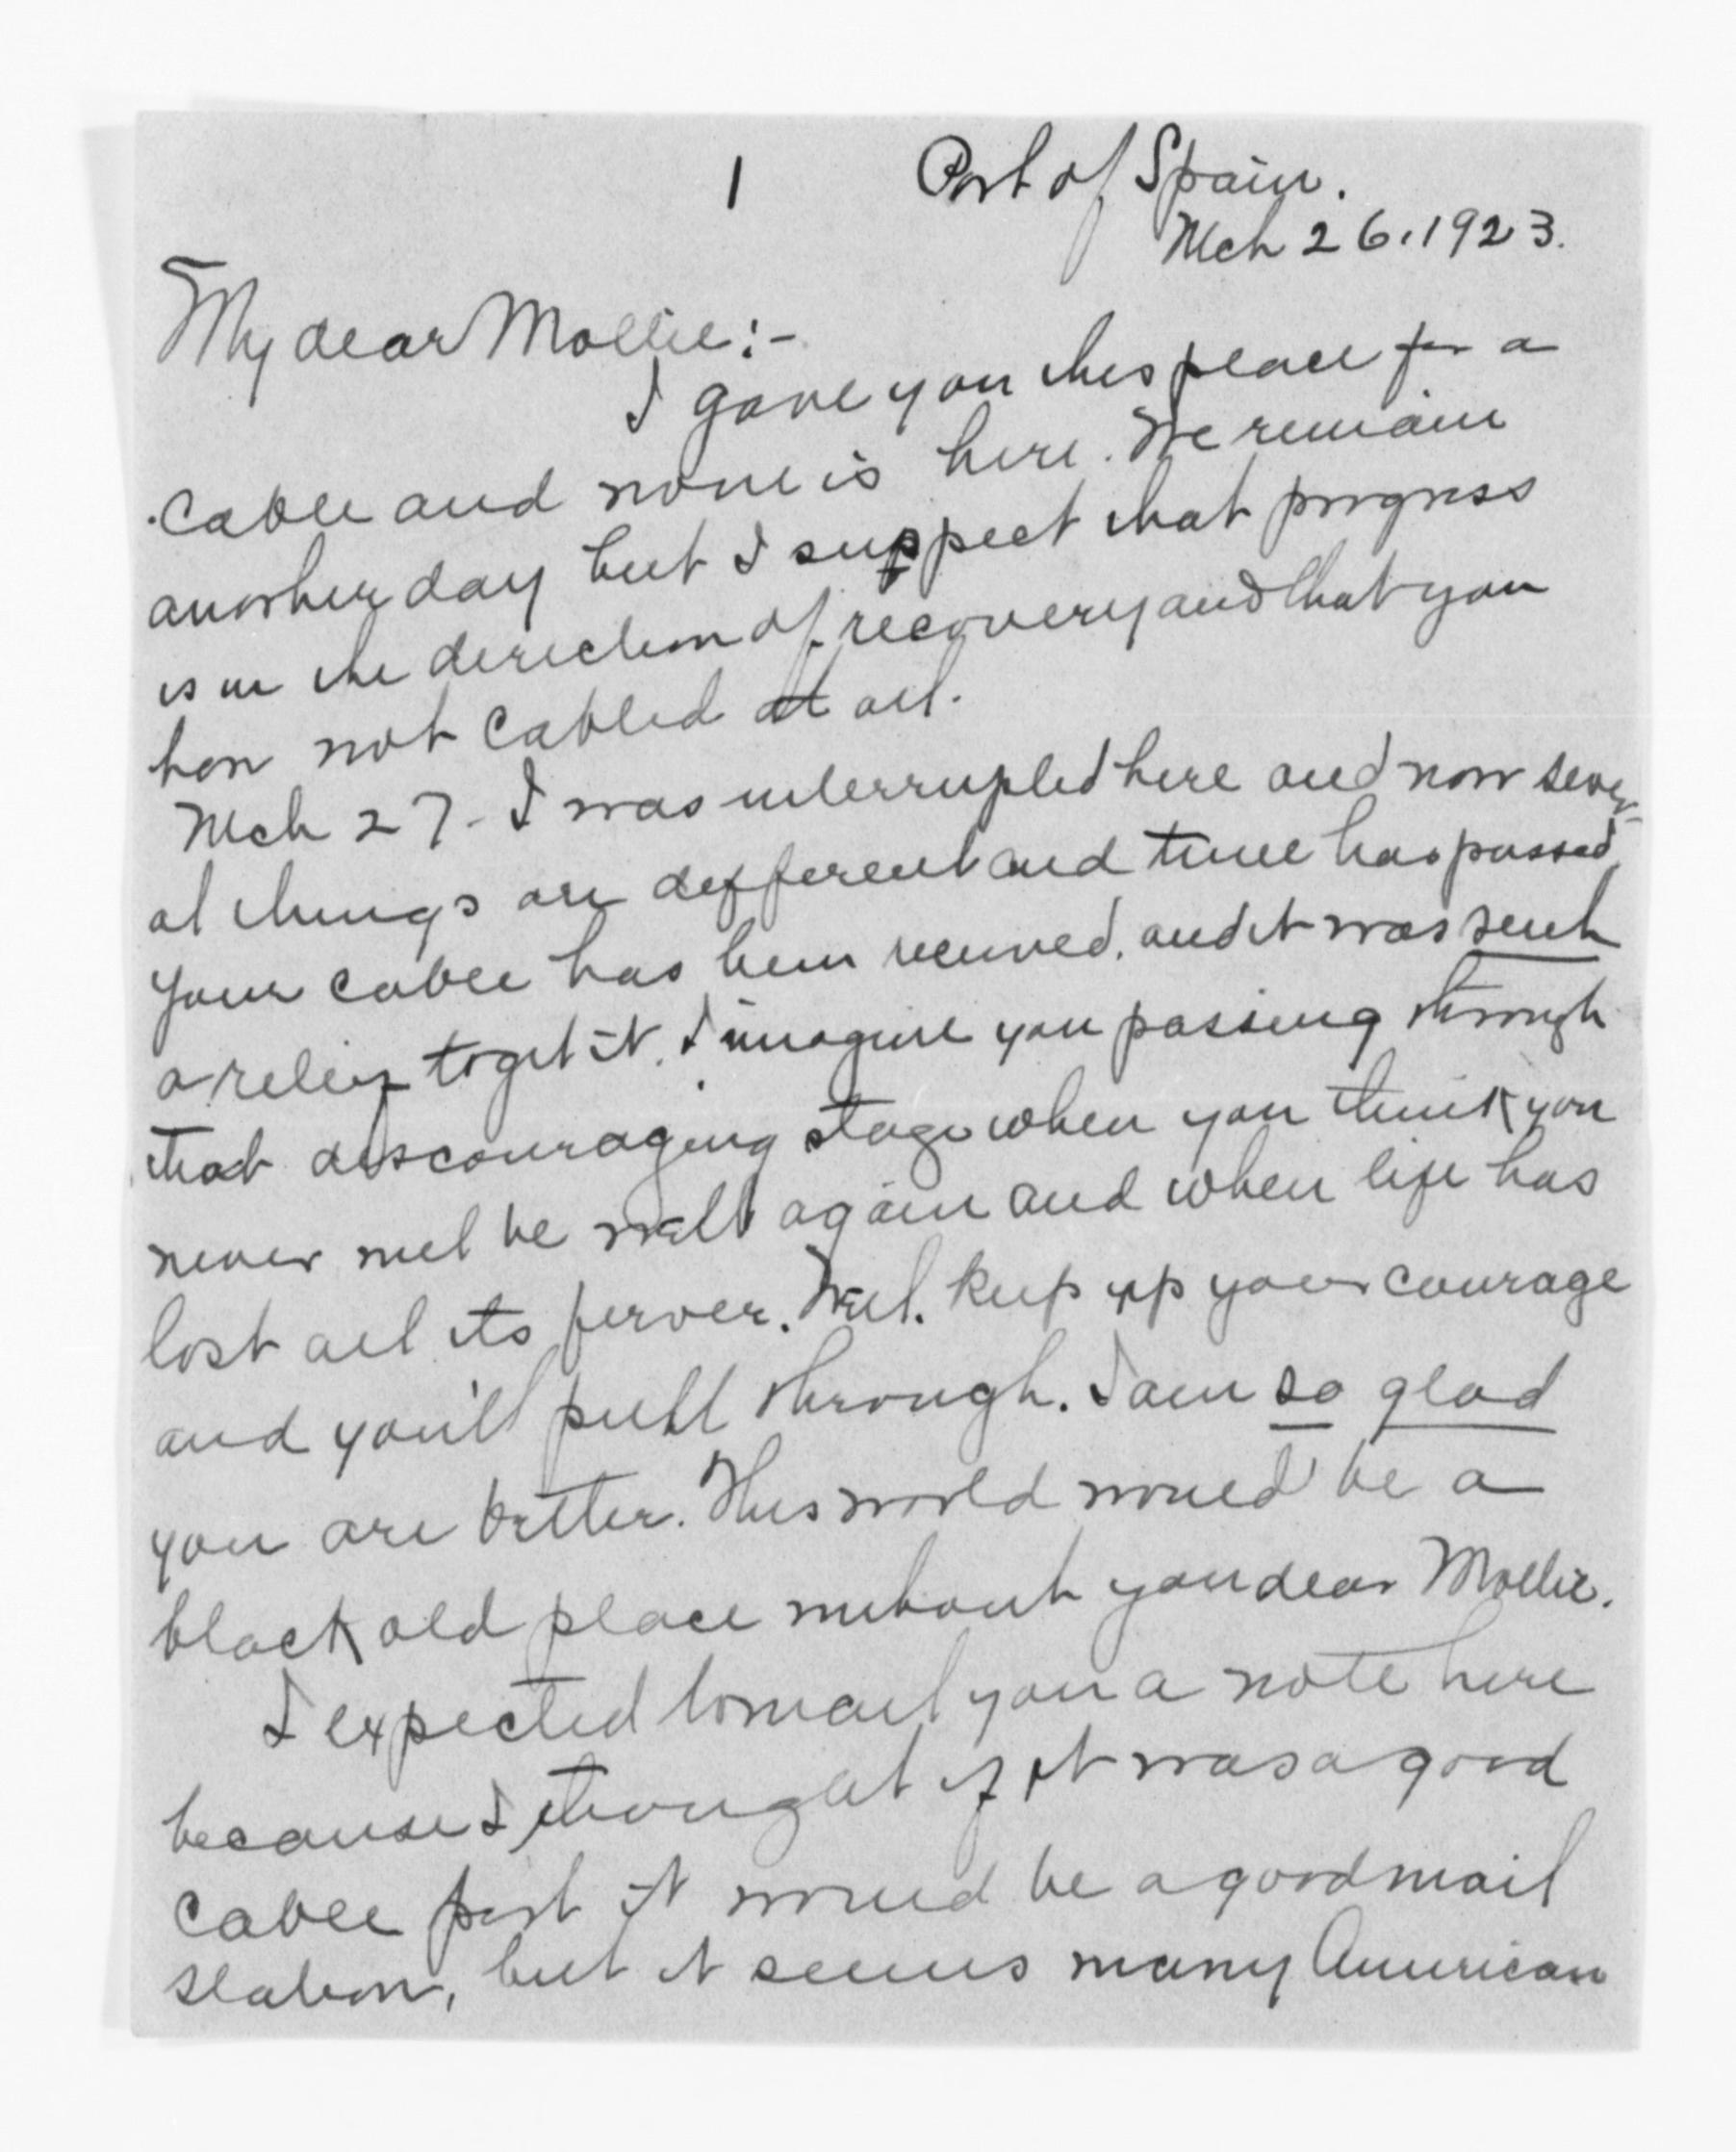 1 Port of Spain.
Mch 26, 1923.
My dear Mollie:-
I gave you this place for a
cable and none is here. We remain
another day but I suppect that progress
is in the direction of recovery and that you
have not cabled at all.
Mch 27- I was interrupted here and now sever-
al things are different and time has passed.
Your cable has been received, and it was such
a relief to get it. I imagine you passing through
that discouraging stage when you think you
never will be well again and when life has
lost all its ferver. Well. Keep up your courage
and you'll pull through. I am so glad
you are better. This world would be a
black old place without you dear Mollie.
I expected to mail you a note here
because I thought if it was a good
cable port it would be a good mail
station, but it seems many American